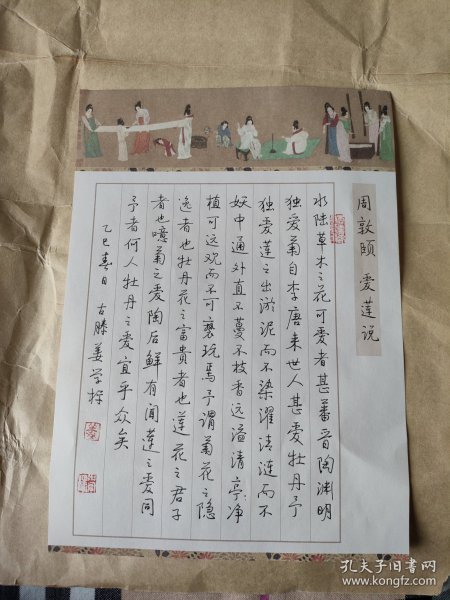 周敦颐 爱莲说
水陆草木之花可爱者甚蕃晋陶渊明
独爱菊自李唐来世人甚爱牡丹予
独爱莲之出淤泥而不染濯清涟而不
妖中通外直不蔓不枝香远溢清亭:净
植可远观而不可亵玩焉予谓菊花之隐
逸者也牡丹花之富贵者也莲花之君子
者也噫菊之爱陶后鲜有闻莲之爱同
予者何人牡丹之爱宜乎众矣
乙巳春日 古滕姜学探
孔夫子旧书网
www.kongfz.com